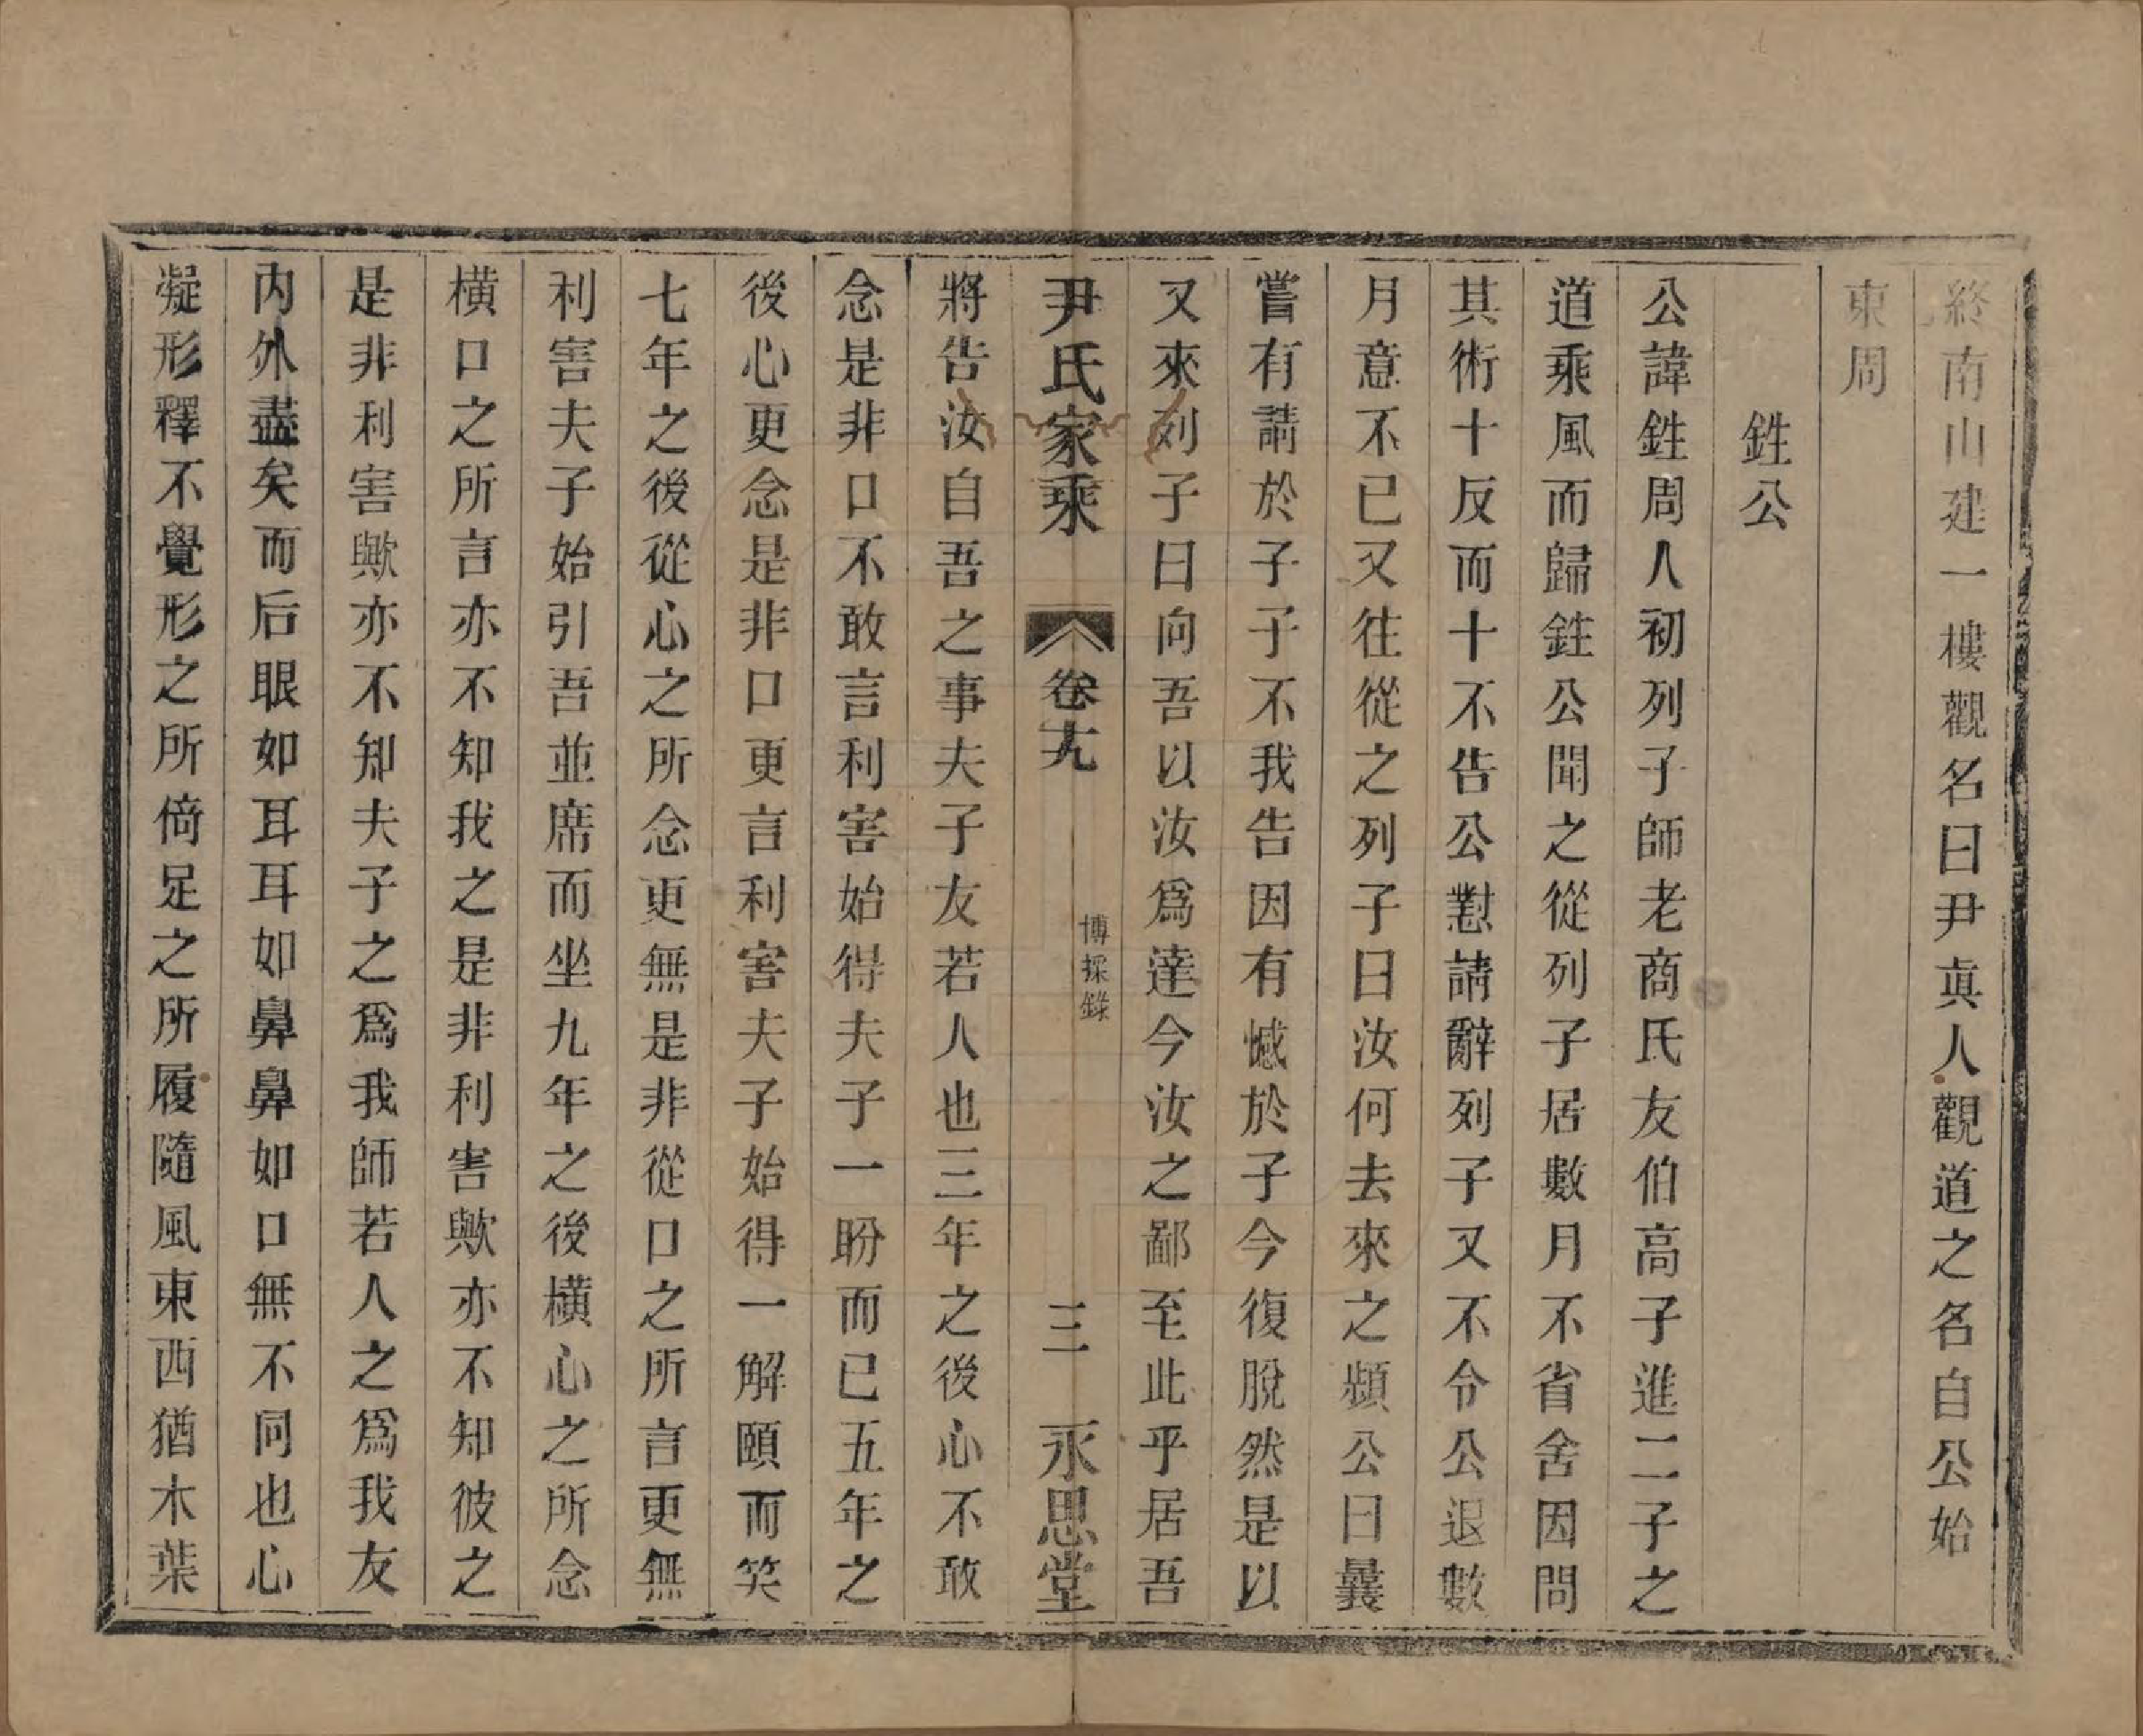 終南山建一樓觀名曰尹真人觀觀道之名自公始
東周
鉎公
公諱鉎周人初列子師老商氏友伯高子進二子之
道乘風而歸鉎公聞之從列子居數月不省舍因問
其術十反而十不告公懟請辭列子又不令公退數
月意不已又往從之列子曰汝何去來之頻公曰曩
嘗有請於子子不我告因有憾於子今復脫然是以
又來列子曰向吾以汝爲達今汝之鄙至此乎居吾
尹氏家乘
卷十九
博採錄
三
永思堂
將告汝自吾之事夫子友若人也三年之後心不敢
念是非口不敢言利害始得夫子一盼而已五年之
後心更念是非口更言利害夫子始得一解頤而笑
七年之後從心之所念更無是非從口之所言更無
利害夫子始引吾並席而坐九年之後橫心之所念
橫口之所言亦不知我之是非利害歟亦不知彼之
是非利害歟亦不知夫子之爲我師若人之爲我友
內外盡矣而后眼如耳耳如鼻鼻如口無不同也心
凝形釋不覺形之所倚足之所履隨風東西猶木葉